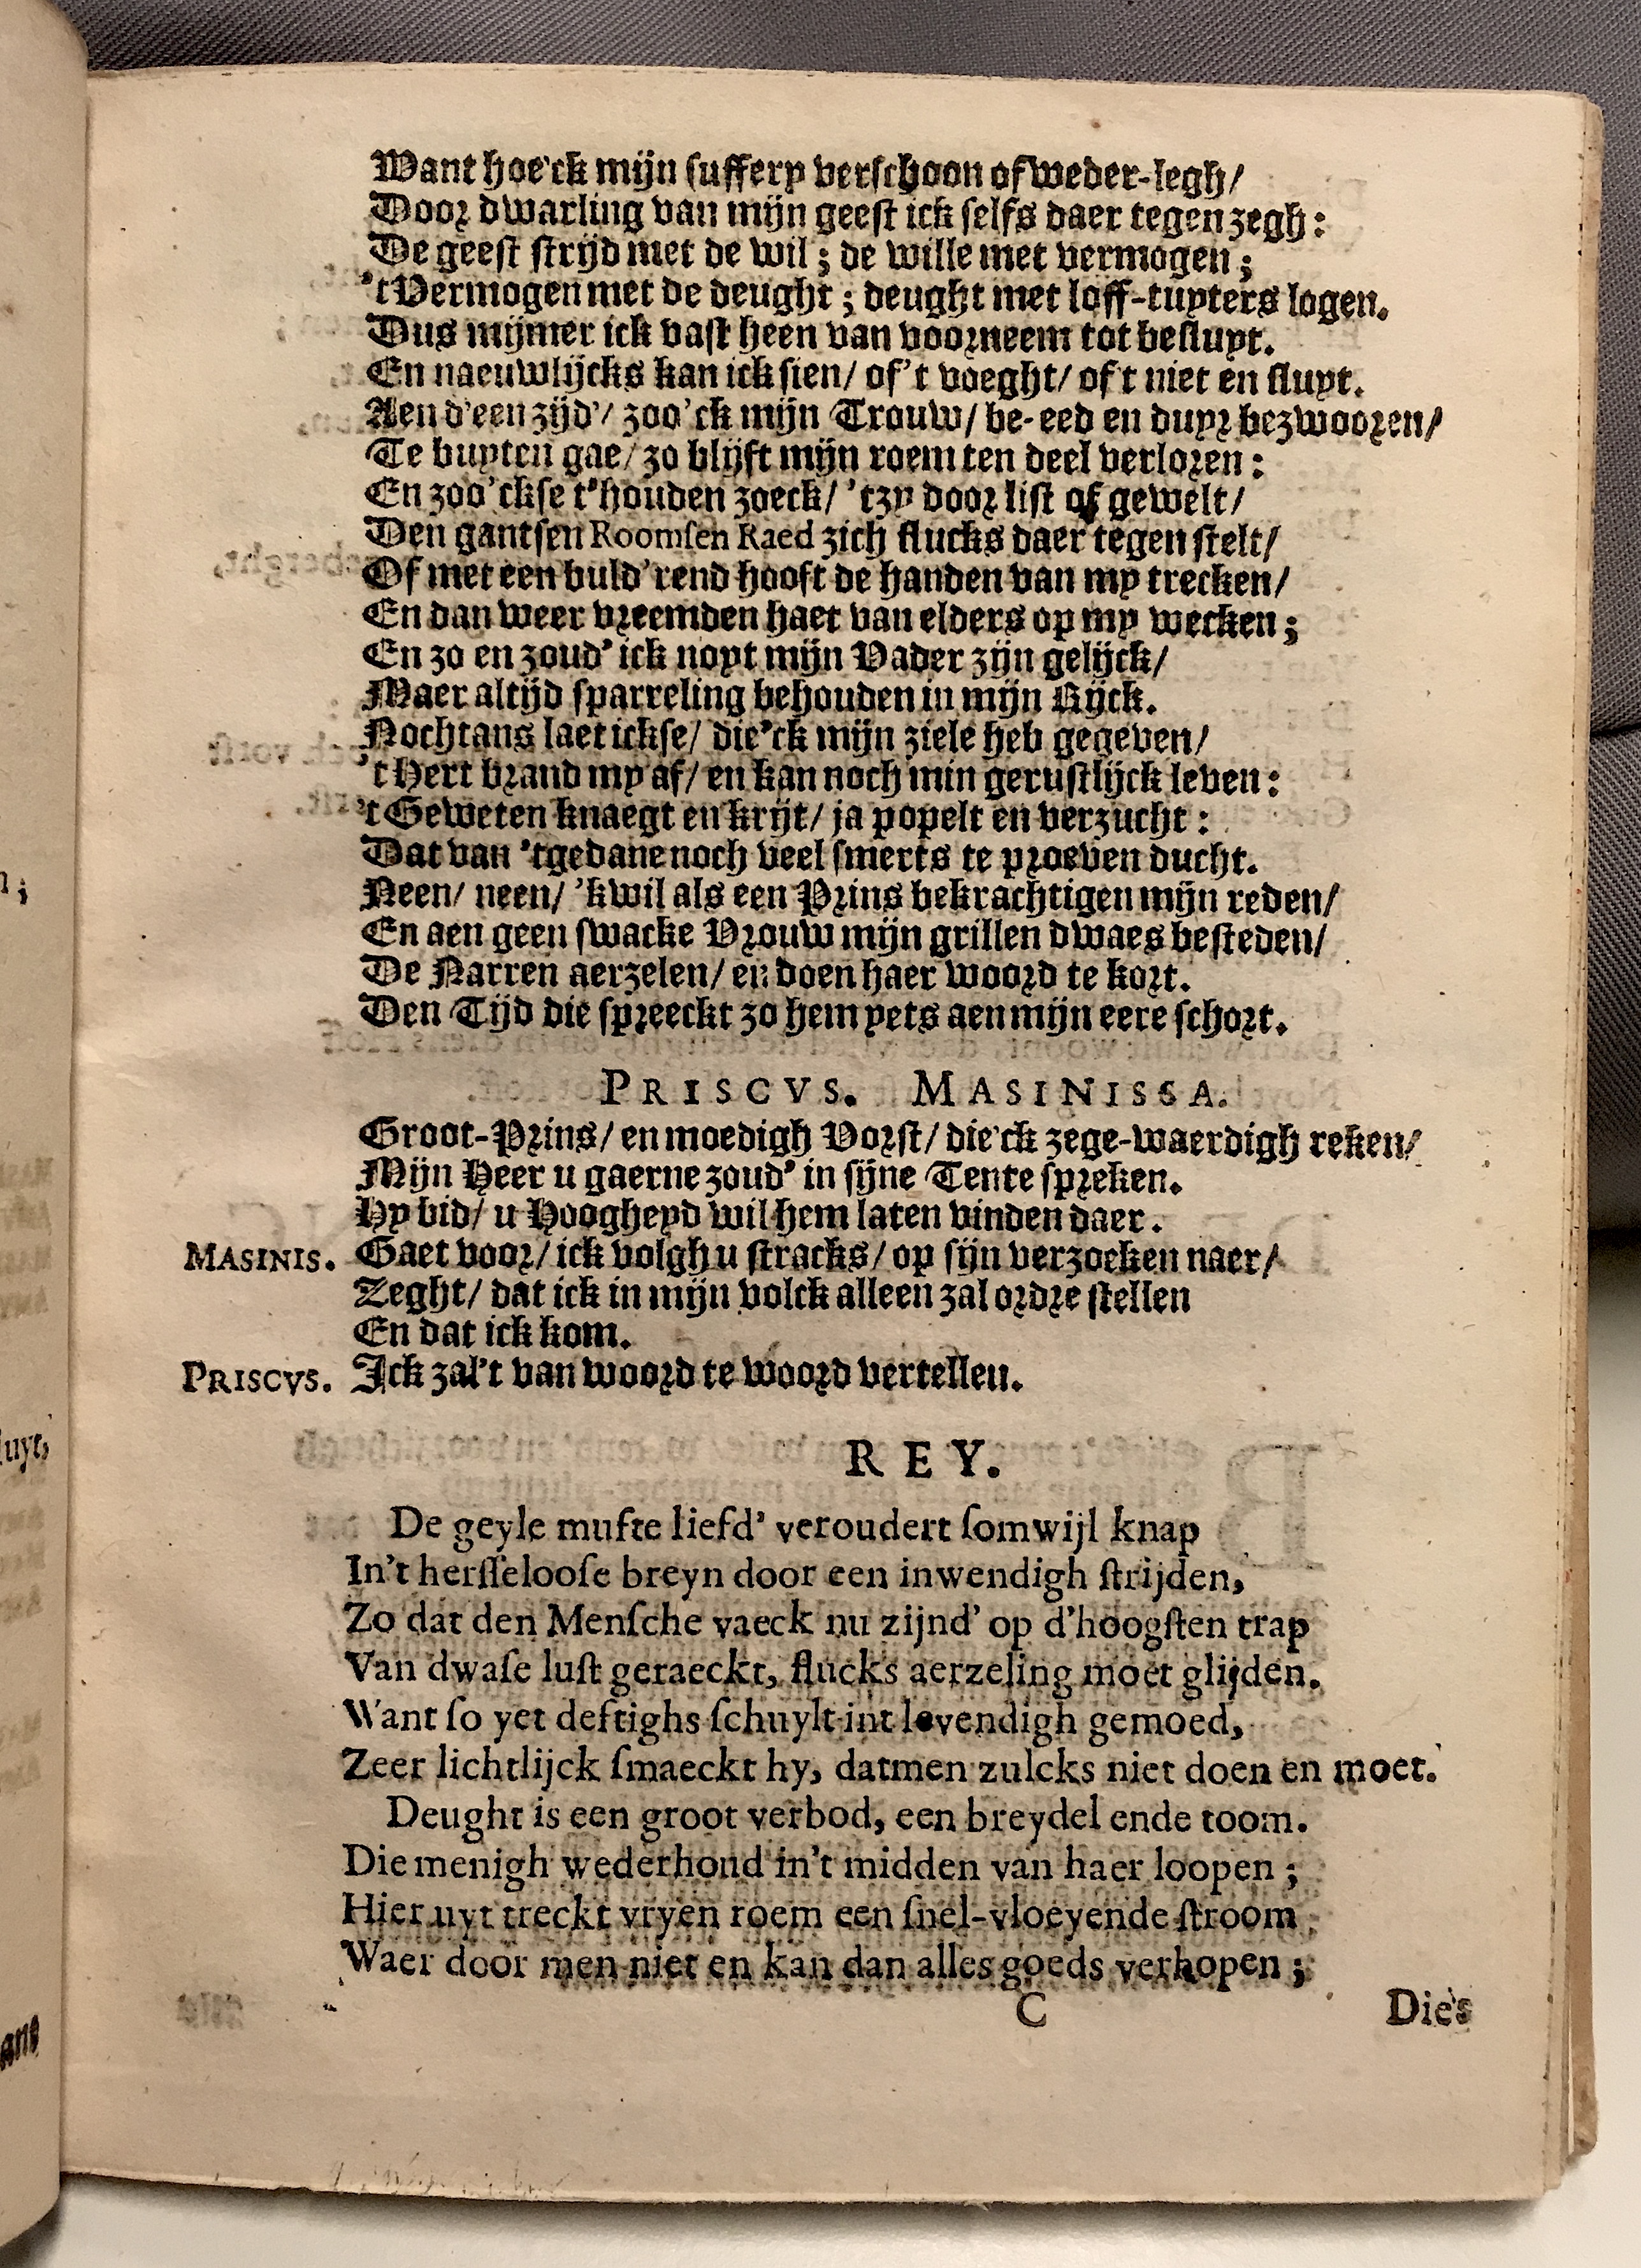 Want hoe'ck mijn suffery verschoon of weder-legh/
Door dwarling van mijn geest ick selfs daer tegen zegh:
De geest strijd met de wil; de wille met vermogen;
't Vermogen met de deught; deught met loff-tuyters logen.
Dus mijmer ick vast heen van voorneem tot besluyt.
En naeuwlijcks kan ick sien/ of't voeght/ of't niet en sluyt.
Aen d'een zijd'/ zoo'ck mijn Trouw/ be-eed en duyr bezwooren/
Te buyten gae/ zo blijft mijn roem ten deel verloren:
En zoo'ckse t'houden zoeck/ 'tzy door list of gewelt/
Den gantsen Roomsen Raed zich flucks daer tegen stelt/
Of met een buld'rend hooft de handen van my trecken/
En dan weer vreemden haet van elders op my wecken;
En zo en zoud' ick noyt mijn Vader zijn gelijck/
Maer altijd sparreling behouden in mijn Rijck.
Nochtans laet ickse/ die'ck mijn ziele heb gegeven/
't Hert brand my af/ en kan noch min gerustlijck leven:
't Geweten knaegt en krijt/ ja popelt en verzucht:
Dat van 'tgedane noch veel smerts te proeven ducht.
Neen/ neen/ 'k wil als een Prins bekrachtigen mijn reden/
En aen geen swacke Vrouw mijn grillen dwaes besteden/
De Narren aerzelen/ en doen haer woord te kort.
Den Tijd die spreeckt zo hem yets aen mijn eere schort.
PRISCVS. MASINISSA.
Groot-Prins/ en moedigh Vorst/ die'ck zege-waerdigh reken/
Mijn Heer u gaerne zoud' in sijne Tente spreken.
Hy bid/ u Hoogheyd wil hem laten vinden daer.
MASINIS. Gaet voor/ ick volgh u stracks/ op sijn verzoeken naer/
Zeght/ dat ick in mijn volck alleen zal ordre stellen
En dat ick kom.
PRISCVS. Ick zal't van woord te woord vertellen.
REY.
De geyle mufte liefd' veroudert somwijl knap
In't hersseloose breyn door een inwendigh strijden,
Zo dat den Mensche vaeck nu zijnd' op d'hoogsten trap
Van dwase lust geraeckt, flucks aerzeling moet glijden.
Want so yet deftighs schuylt int levendigh gemoed,
Zeer lichtlijck smaeckt hy, datmen zulcks niet doen en moet.
Deught is een groot verbod, een breydel ende toom.
Die menigh wederhoud in't midden van haer loopen;
Hier uyt treckt vryen roem een snel-vloeyende stroom
Waer door men niet en kan dan alles goeds verhopen;
C
Die's